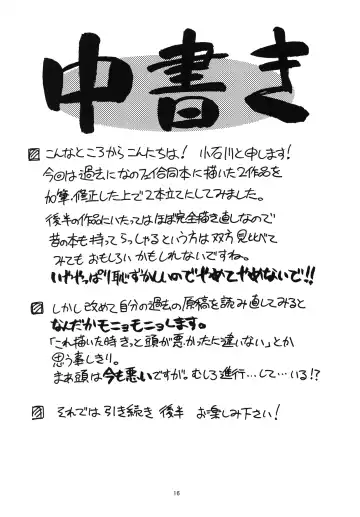 中書き
こんなところからこんにちは! 小石川と申します!
今回は過去になのフェイ合同本に描いた2作品を
加筆・修正した上で2本立てにしてみました。
後半の作品にいたってはほぼ完全描き直しなので
昔の本も持ってらっしゃるという方は双方見比べて
みてもおもしろいかもしれないですね。
いややっぱり恥ずかしいのでやめてやめないで!!
しかし改めて自分の過去の原稿を読み直してみると
なんだかモニョモニョします。
「これ描いた時きっと頭が悪かったに違いない」とか
思う事しきり。
まぁ頭は今も悪いですが。むしろ進行…して…いる!?
それでは引き続き 後半 お楽しみ下さい!
16